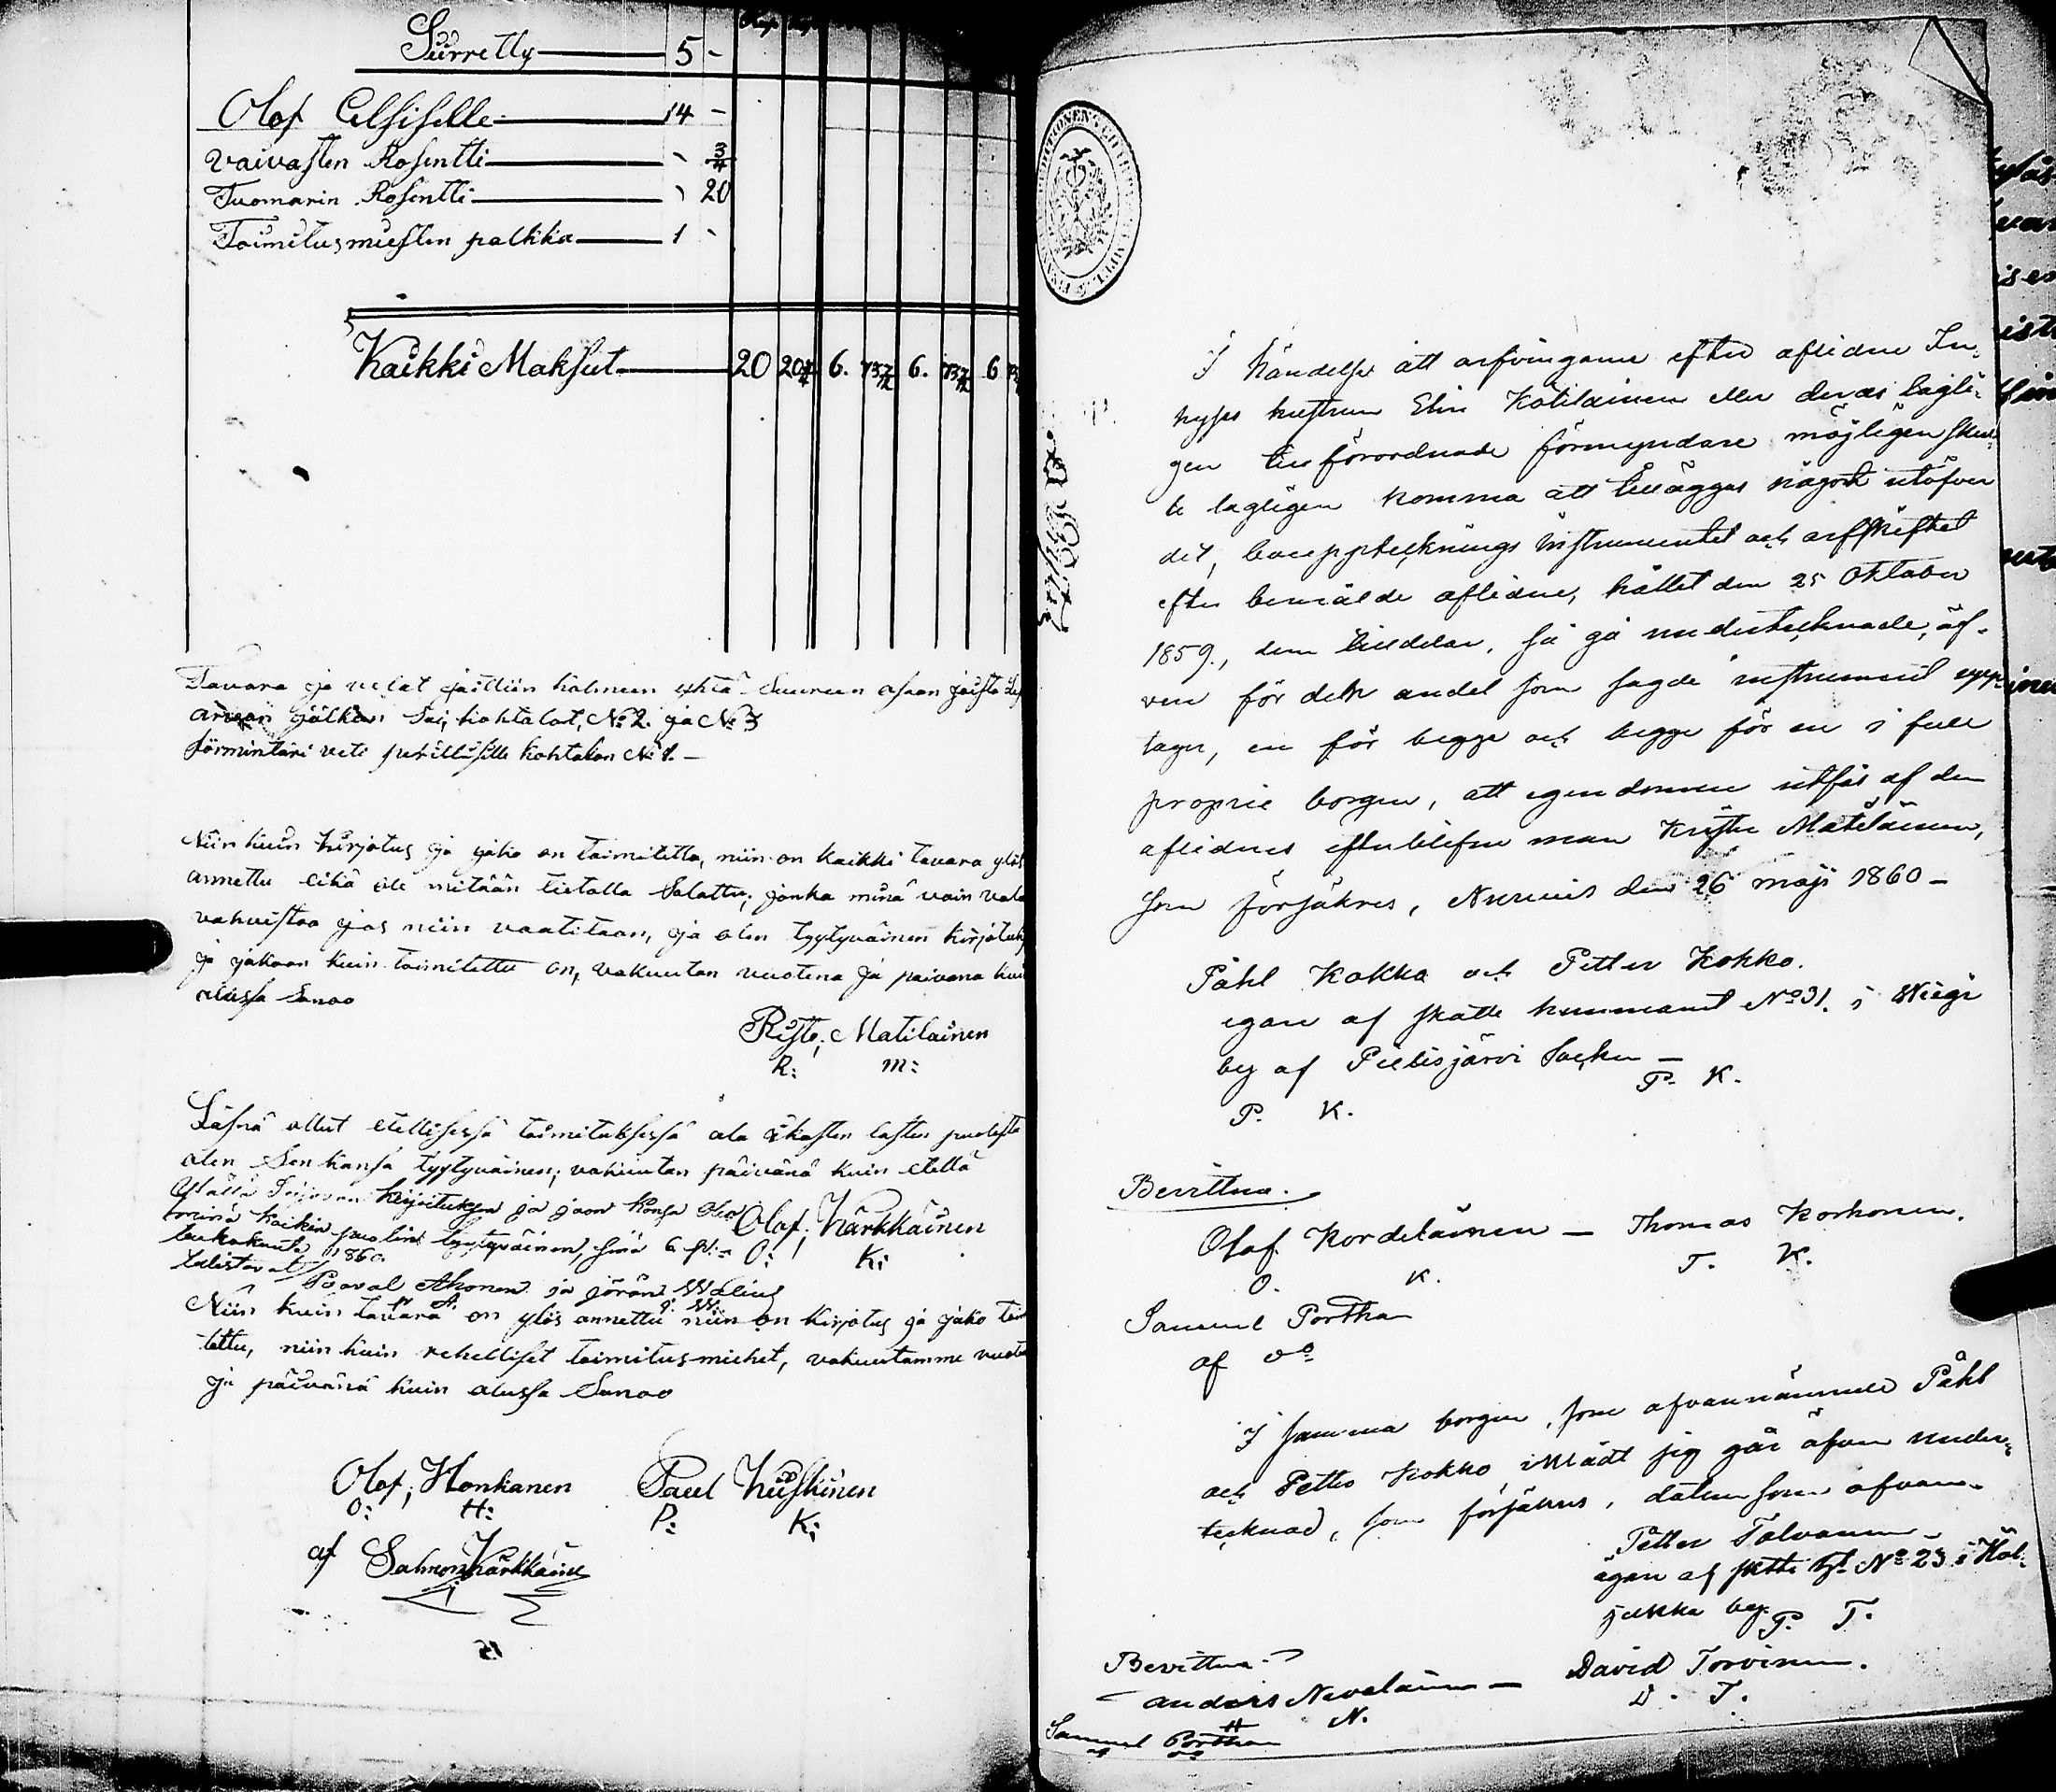 Siirretty 5 -
Olof Celsiselle 14 -
Vaivasten Rosentti - 3/4
Tuomarin Rosentti - 20
Toimitusmiesten palkka 1 -
Kaikki Maksut 20 20 3/4 6. 73 6. 73 6
Tavara ja velat jaettiin kolmeen yhtä Suureen osaan joista
arvan jälkeen Sai, kohtalot, No 2. ja No 3
förmintäri veti perillisille kohtalon No 1. -
Niin kuin kirjotus ja jako on toimitettu, niin on kaikki tavara ylös
annettu eikä ole mitään tietalla Salattu; jonka minä voin vala
vahvistaa jos niin vaatitaan, ja olen tyytyväinen kirjotuk
ja jakoon kuin toimitettu on, vakuutan vuotena ja paivana kuin
alussa Sanoo
Risto; Matilainen
R: M:
Läsnä ollut etellisessä toimituksessa ala ikästen lasten puolesta
olen Sen kansa tyytyväinen; vakuutan päivänä kuin etellä
Olof; Kärkkäinen
O: K:
kirjoituksen ja jaon kansa olen
minä kaikin puolin tyytyväinen, siinä 6 p:
toukokuuta 1860.
todistavat
Paaval Ahonen ja Jöran
P A. J. W.
Niin kuin tavara on ylös annettu niin on kirjotus ja jako toimi
tettu, niin kuin rehelliset toimitusmiehet, vakuutamme vuotena
ja päivänä kuin alussa Sanoo
Olof; Honkanen Paul Kiiskinen
O: H: P: K:
af Salmon Kärkkäine
15
I händelse att arfvingarne efter aflidne In-
hyses hustrun Elin Kotilainen eller deras lagli-
gen tillförordnade förmyndare möjligen skul-
le lagligen komma att tilläggas något utöfver
det, bouppteknings instrumentet och arfskiftet
efter bemälde aflidne, hållet den 25 Oktober
1859., dem tilldelar, så gå undertecknade, äf-
ven för den andel som sagde instrument upp-
tager, en för begge och begge för en i full
proprie borgen, att egendomen utfås af den
aflidnes efterblifne man Krister Matilainen,
som försäkres, Nurmis den 26 Maji 1860 -
Påhl Kokko och Petter Kokko.
egare af skatte hemmanet No 31. i Wiegi
by af Pielisjärvi Socken -
P. K. P. K.
Bevittna.
Olof Kordelainen - Thomas Korhonen.
O. K. T. K.
Samuel Porthan
af do
I samma borgen, som ofvannämnde Påhl
och Petter Kokko iklädt sig går äfven under-
tecknad, som försäkres, datum som ofvan.
Petter Tolvanen -
ägare af skatte ht No 23 i Höl-
jäkkä by. P. T.
Bevittna.
Anders Nevalainen - David Torvinen.
N. D. T.
Samuel Porthan